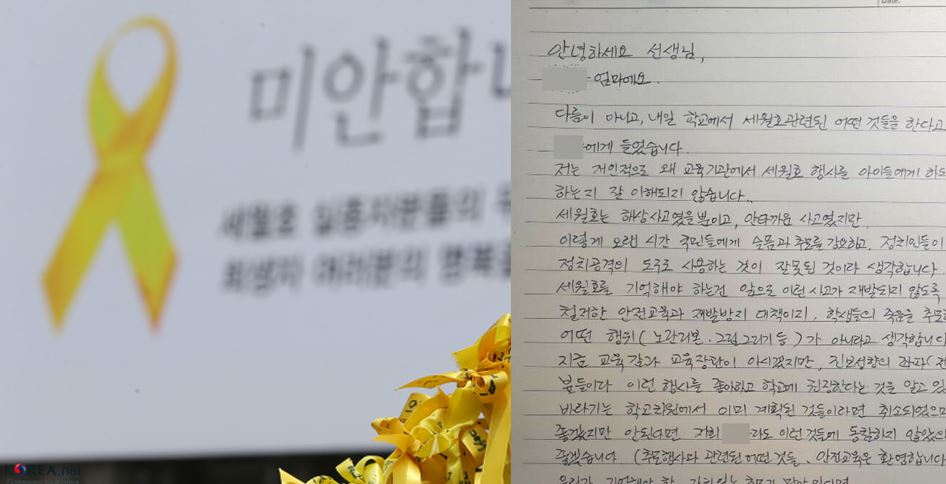 미안합니
세월호 실종자분들의
희생자 여러분의 행복을
KOREA.net
Date.
안녕하세요 선생님,
엄마에요.
다름이 아니고, 내일 학교에서 세월호관련된 어떤 것들을 한다고
에게 들었습니다.
저는 개인적으로 왜 교육기관에서 세월호 행사를 아이들에게 하도
하는지 잘 이해되지 않습니다..
세월호는 해상사고였을뿐이고, 안타까운 사고였지만,
이렇게 오랜 시간 국민들에게 슬픔과 추모를 강요하고, 정치인들이
정치공격의 도구로 사용하는 것이 잘못된 것이라 생각합니다.
세월호를 기억해야 하는건 앞으로 이런 사고가 재발되지 않도록
철저한 안전교육과 재발방지 대책이지, 학생들의 죽음을 추모하
어떤 행위(노란리본·그림그리기 등)가 아니라고 생각합니다
지금 교육감과 교육장관이 아시겠지만, 진보성향의 좌파(전
분들이라 이런 행사를 좋아하고 학교에 권장한다는 것을 알고 있
바라기는 학교차원에서 이미 계획된 것들이라면 취소되었으면
좋겠지만 안된다면 저희 라도 이런 것들에 동참하지 않았으
좋겠습니다 (추모행사와 관련된 어떤 것들. 안전교육은 환영합니다
우리가 기억해야 할